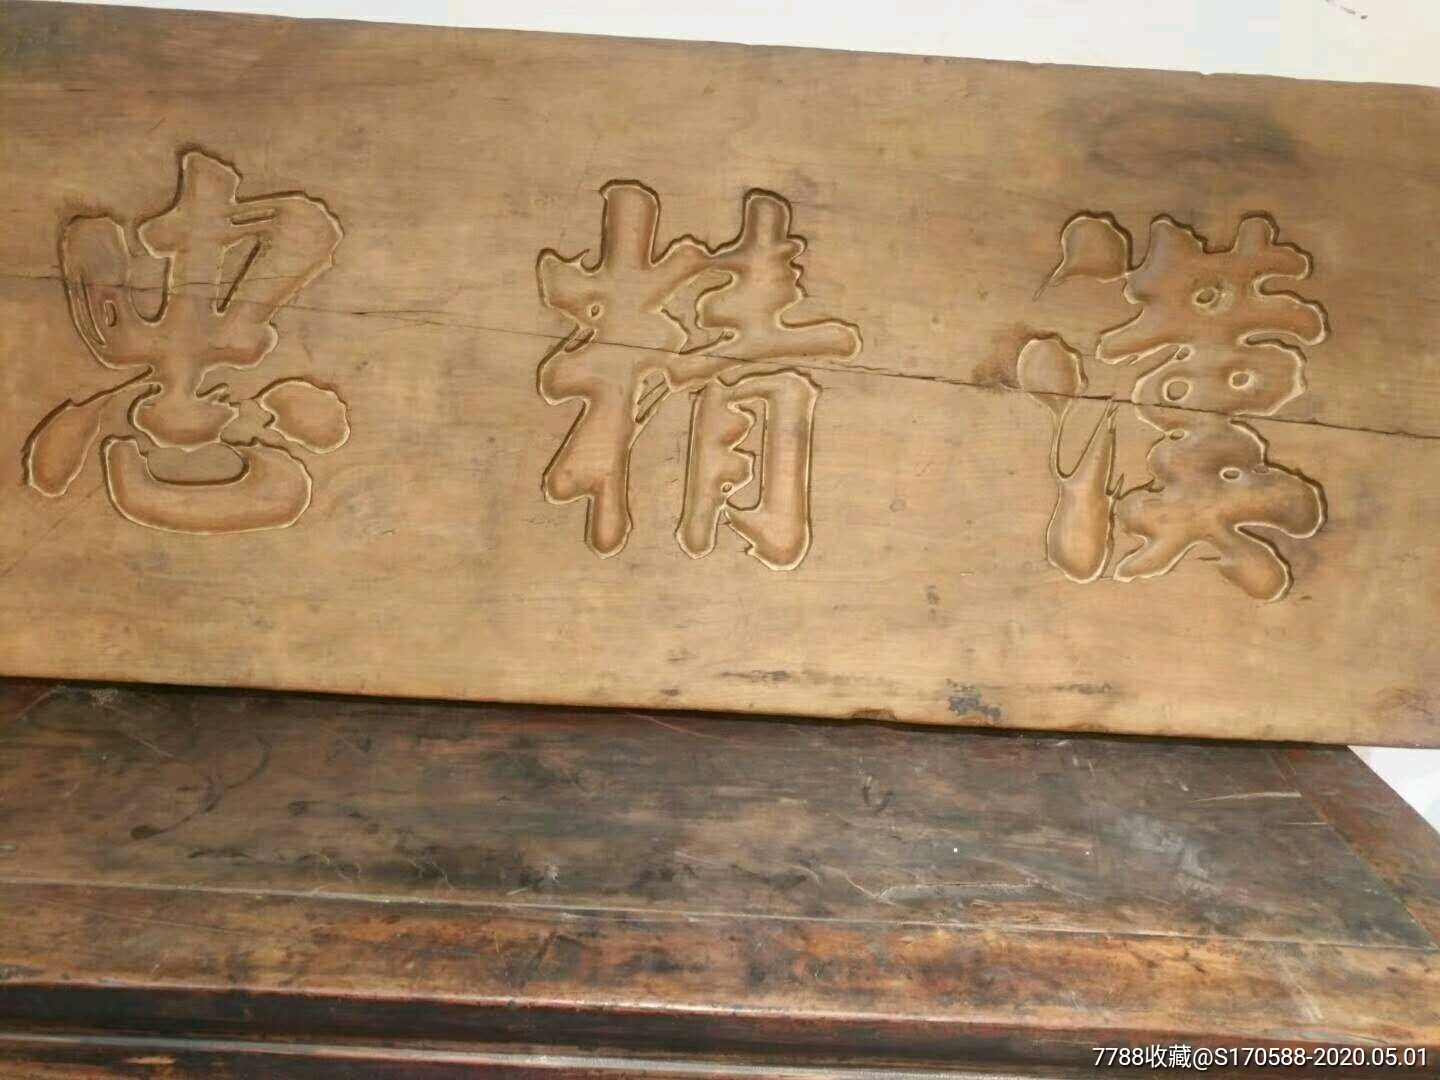 漢精忠
7788收藏@S170588-2020.05.01